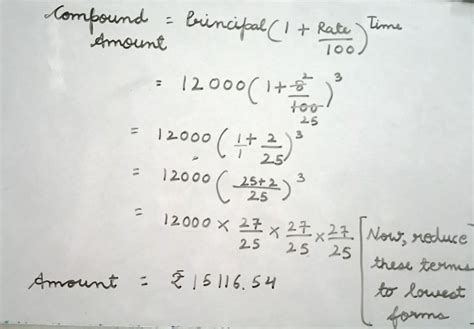 Compound = Principal(1 + Rate/100)^Time
Amount
= 12000(1+8̶ 2/1̶0̶0̶ 25)^3
= 12000(1/1 + 2/25)^3
= 12000(25+2/25)^3
= 12000 × 27/25 × 27/25 × 27/25 [Now, reduce
these terms
to lowest
forms
Amount = ₹15116.54